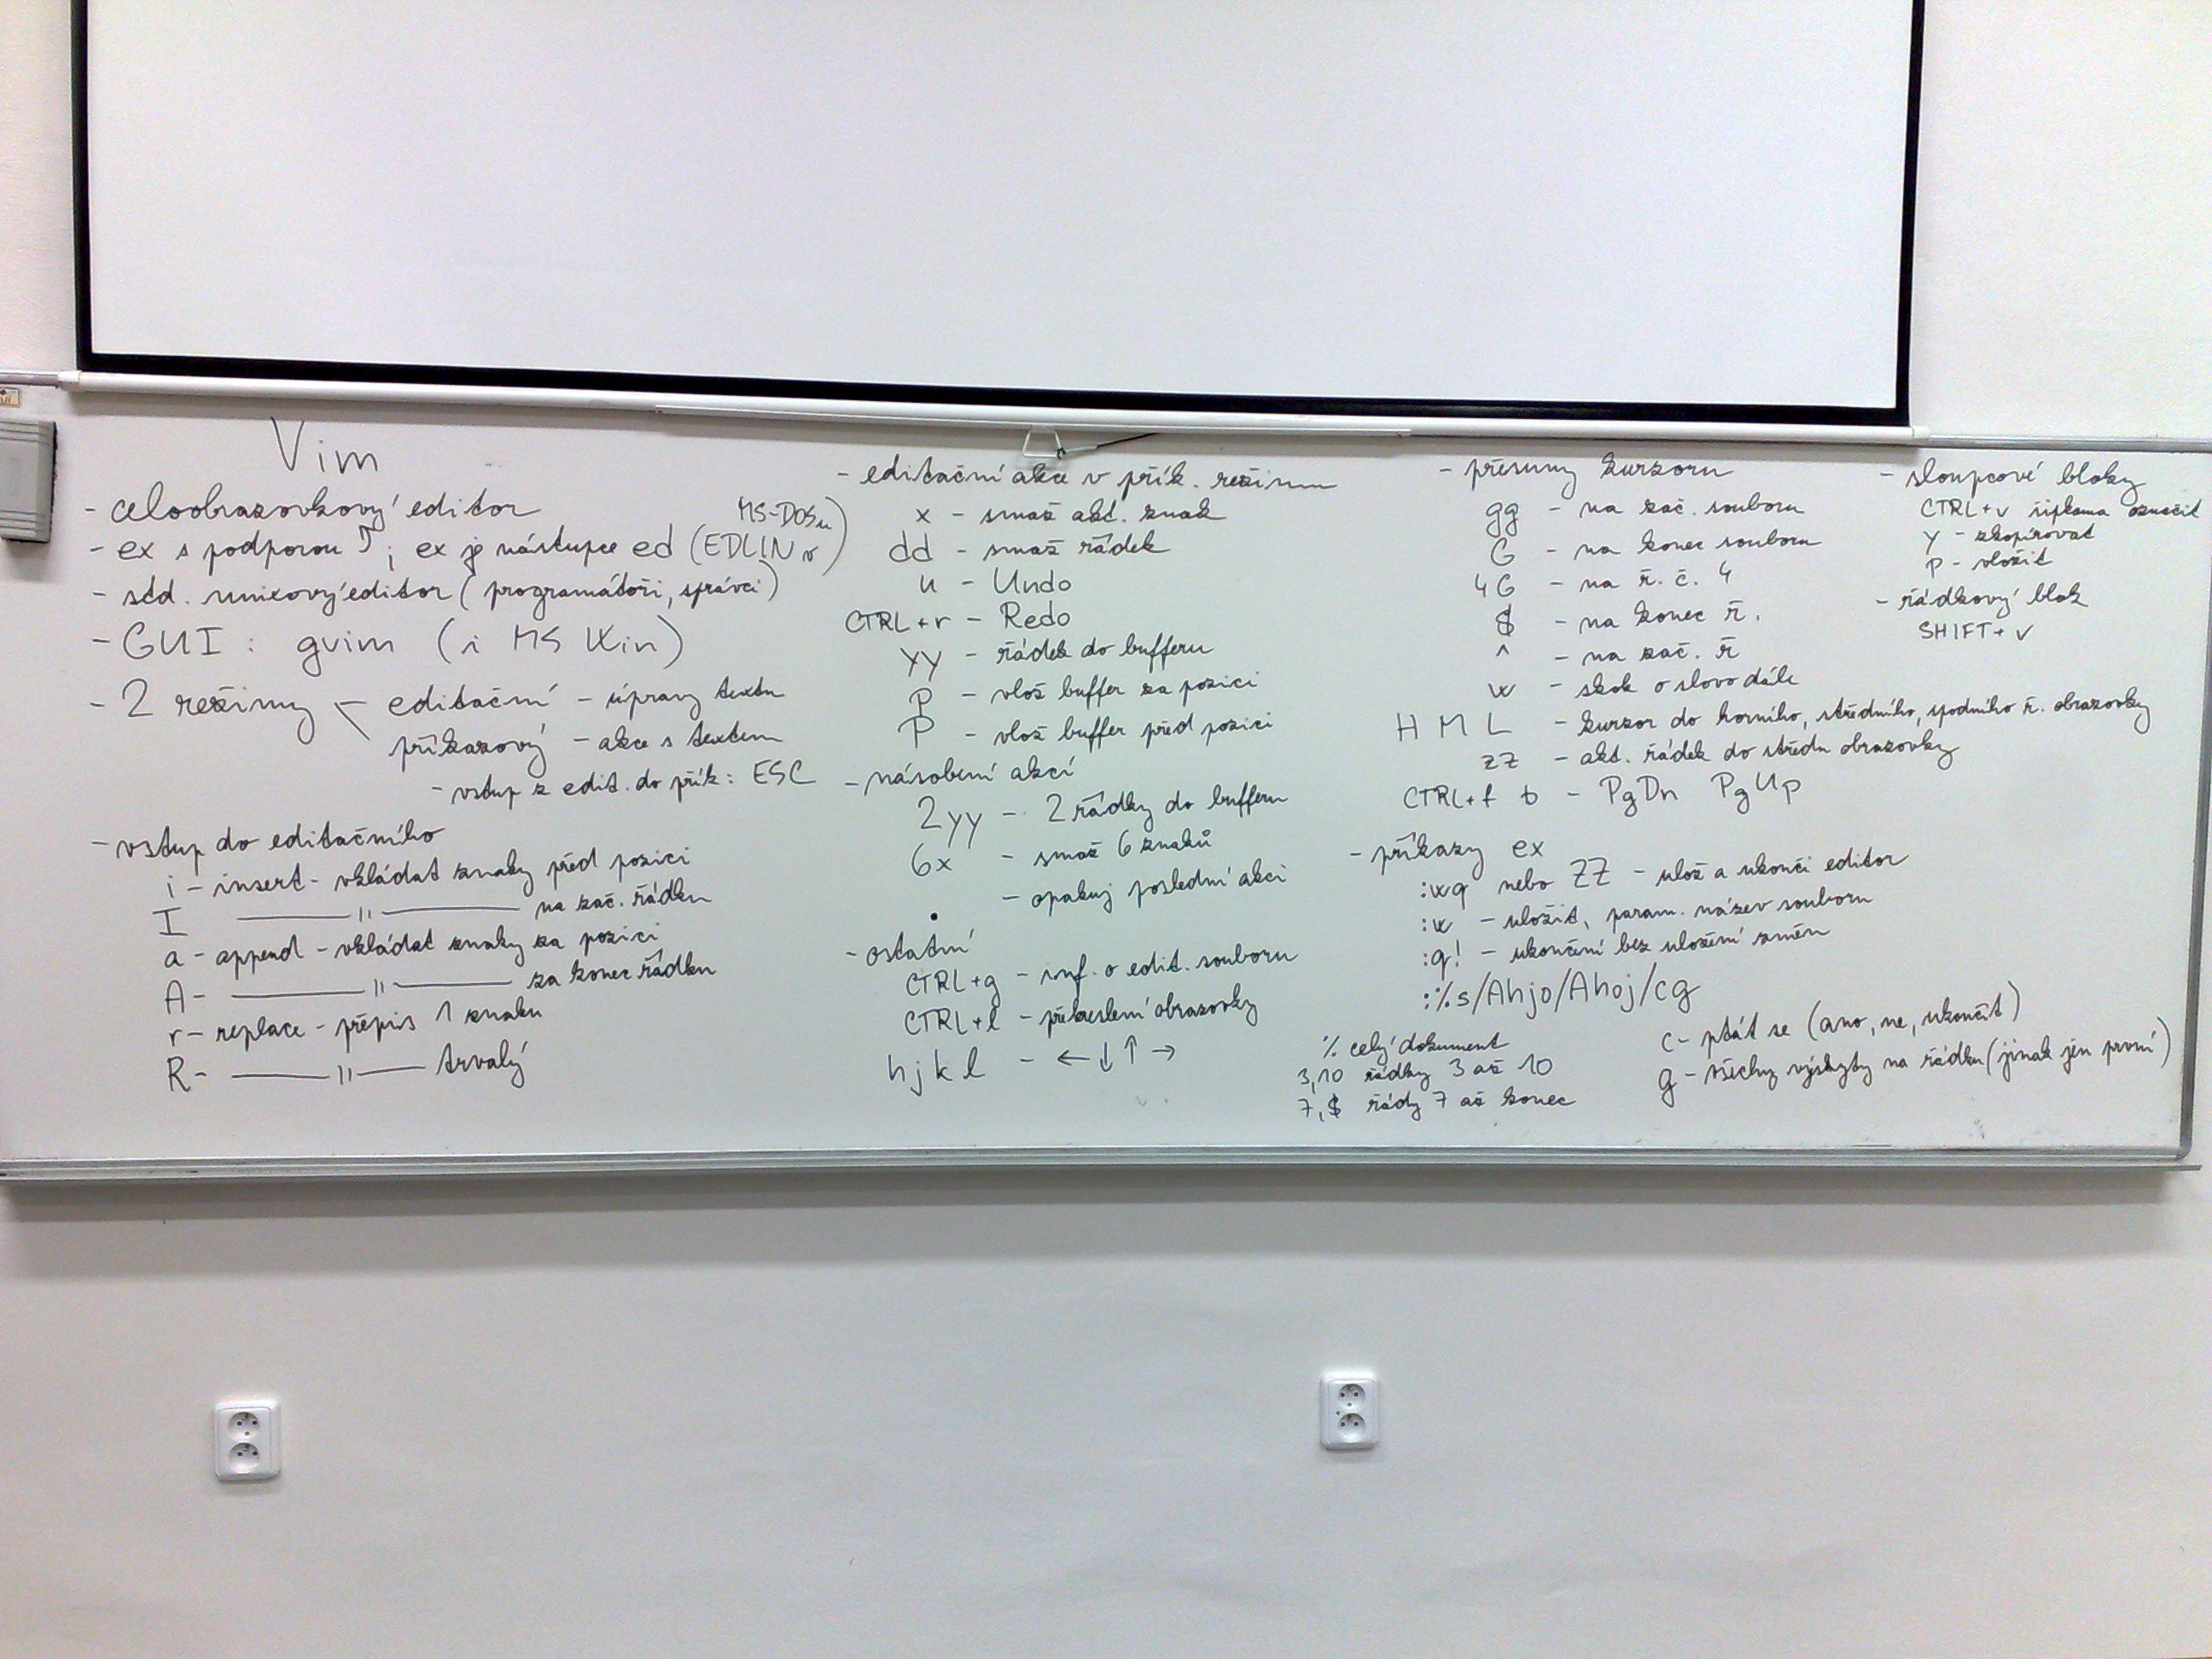 Vim
- celoobrazovkový editor
- ex s podporou ; ex je nástupce ed (EDLIN v MS-DOSu)
- std. unixový editor (programátoři, správci)
- GUI : gvim (i MS Win)
- 2 režimy - editační - úpravy textu
příkazový - akce s textem
- vstup z edit. do přík: ESC
- vstup do editačního
i - insert - vkládat znaky před pozici
I —— 〃 —— na zač. řádku
a - append - vkládat znaky za pozici
A - —— 〃 —— za konec řádku
r - replace - přepis 1 znaku
R - —— 〃 —— trvalý
- editační akce v přík. režimu
x - smaž akt. znak
dd - smaž řádek
u - Undo
CTRL+r - Redo
yy - řádek do bufferu
p - vlož buffer za pozici
P - vlož buffer před pozici
- násobení akcí
2yy - 2 řádky do bufferu
6x - smaž 6 znaků
. - opakuj poslední akci
- ostatní
CTRL+g - inf. o edit. souboru
CTRL+l - překreslení obrazovky
h j k l - ← ↓ ↑ →
- přesuny kurzoru
gg - na zač. souboru
G - na konec souboru
4G - na ř. č. 4
$ - na konec ř.
^ - na zač. ř
w - skok o slovo dále
H M L - kurzor do horního, středního, spodního ř. obrazovky
zz - akt. řádek do středu obrazovky
CTRL+f b - PgDn PgUp
- příkazy ex
:wq nebo ZZ - ulož a ukonči editor
:w - uložit, param. název souboru
:q! - ukončení bez uložení změn
:%s/Ahjo/Ahoj/cg
% celý dokument
3,10 řádky 3 až 10
7,$ řády 7 až konec
c - ptát se (ano, ne, ukončit)
g - všechny výskyty na řádku (jinak jen první)
- sloupcové bloky
CTRL+v šipkama označit
y - zkopírovat
p - vložit
- řádkový blok
SHIFT+v